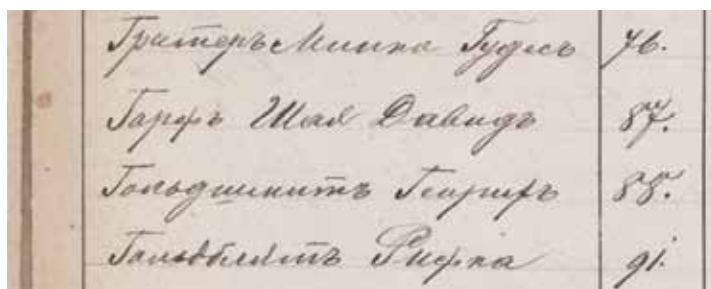 Гратеръ Минка Гудесъ 76.
Гарфъ Шая Давидъ 87.
Гольдшмитъ Генрихъ 88.
Гольдблятъ Рифка 91.